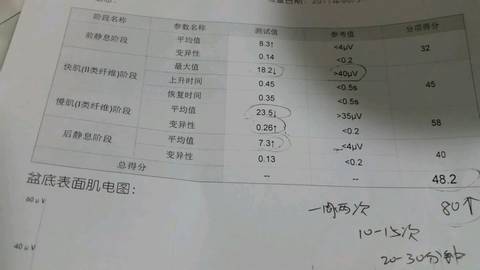 阶段名称 参数名称 测试值 参考值 分项得分
前静息阶段 平均值 8.3↑ <4μV 32
变异性 0.14 <0.2
快肌(II类纤维)阶段 最大值 18.2↓ >40μV 45
上升时间 0.45 <0.5s
恢复时间 0.35 <0.5s
慢肌(I类纤维)阶段 平均值 23.5↓ >35μV 58
变异性 0.26↑ <0.2
后静息阶段 平均值 7.3↑ <4μV 40
变异性 0.13 <0.2
总得分 -- -- 48.2
盆底表面肌电图:
60μV
40μV
一周两次 80↑
10-15次
20-30分钟